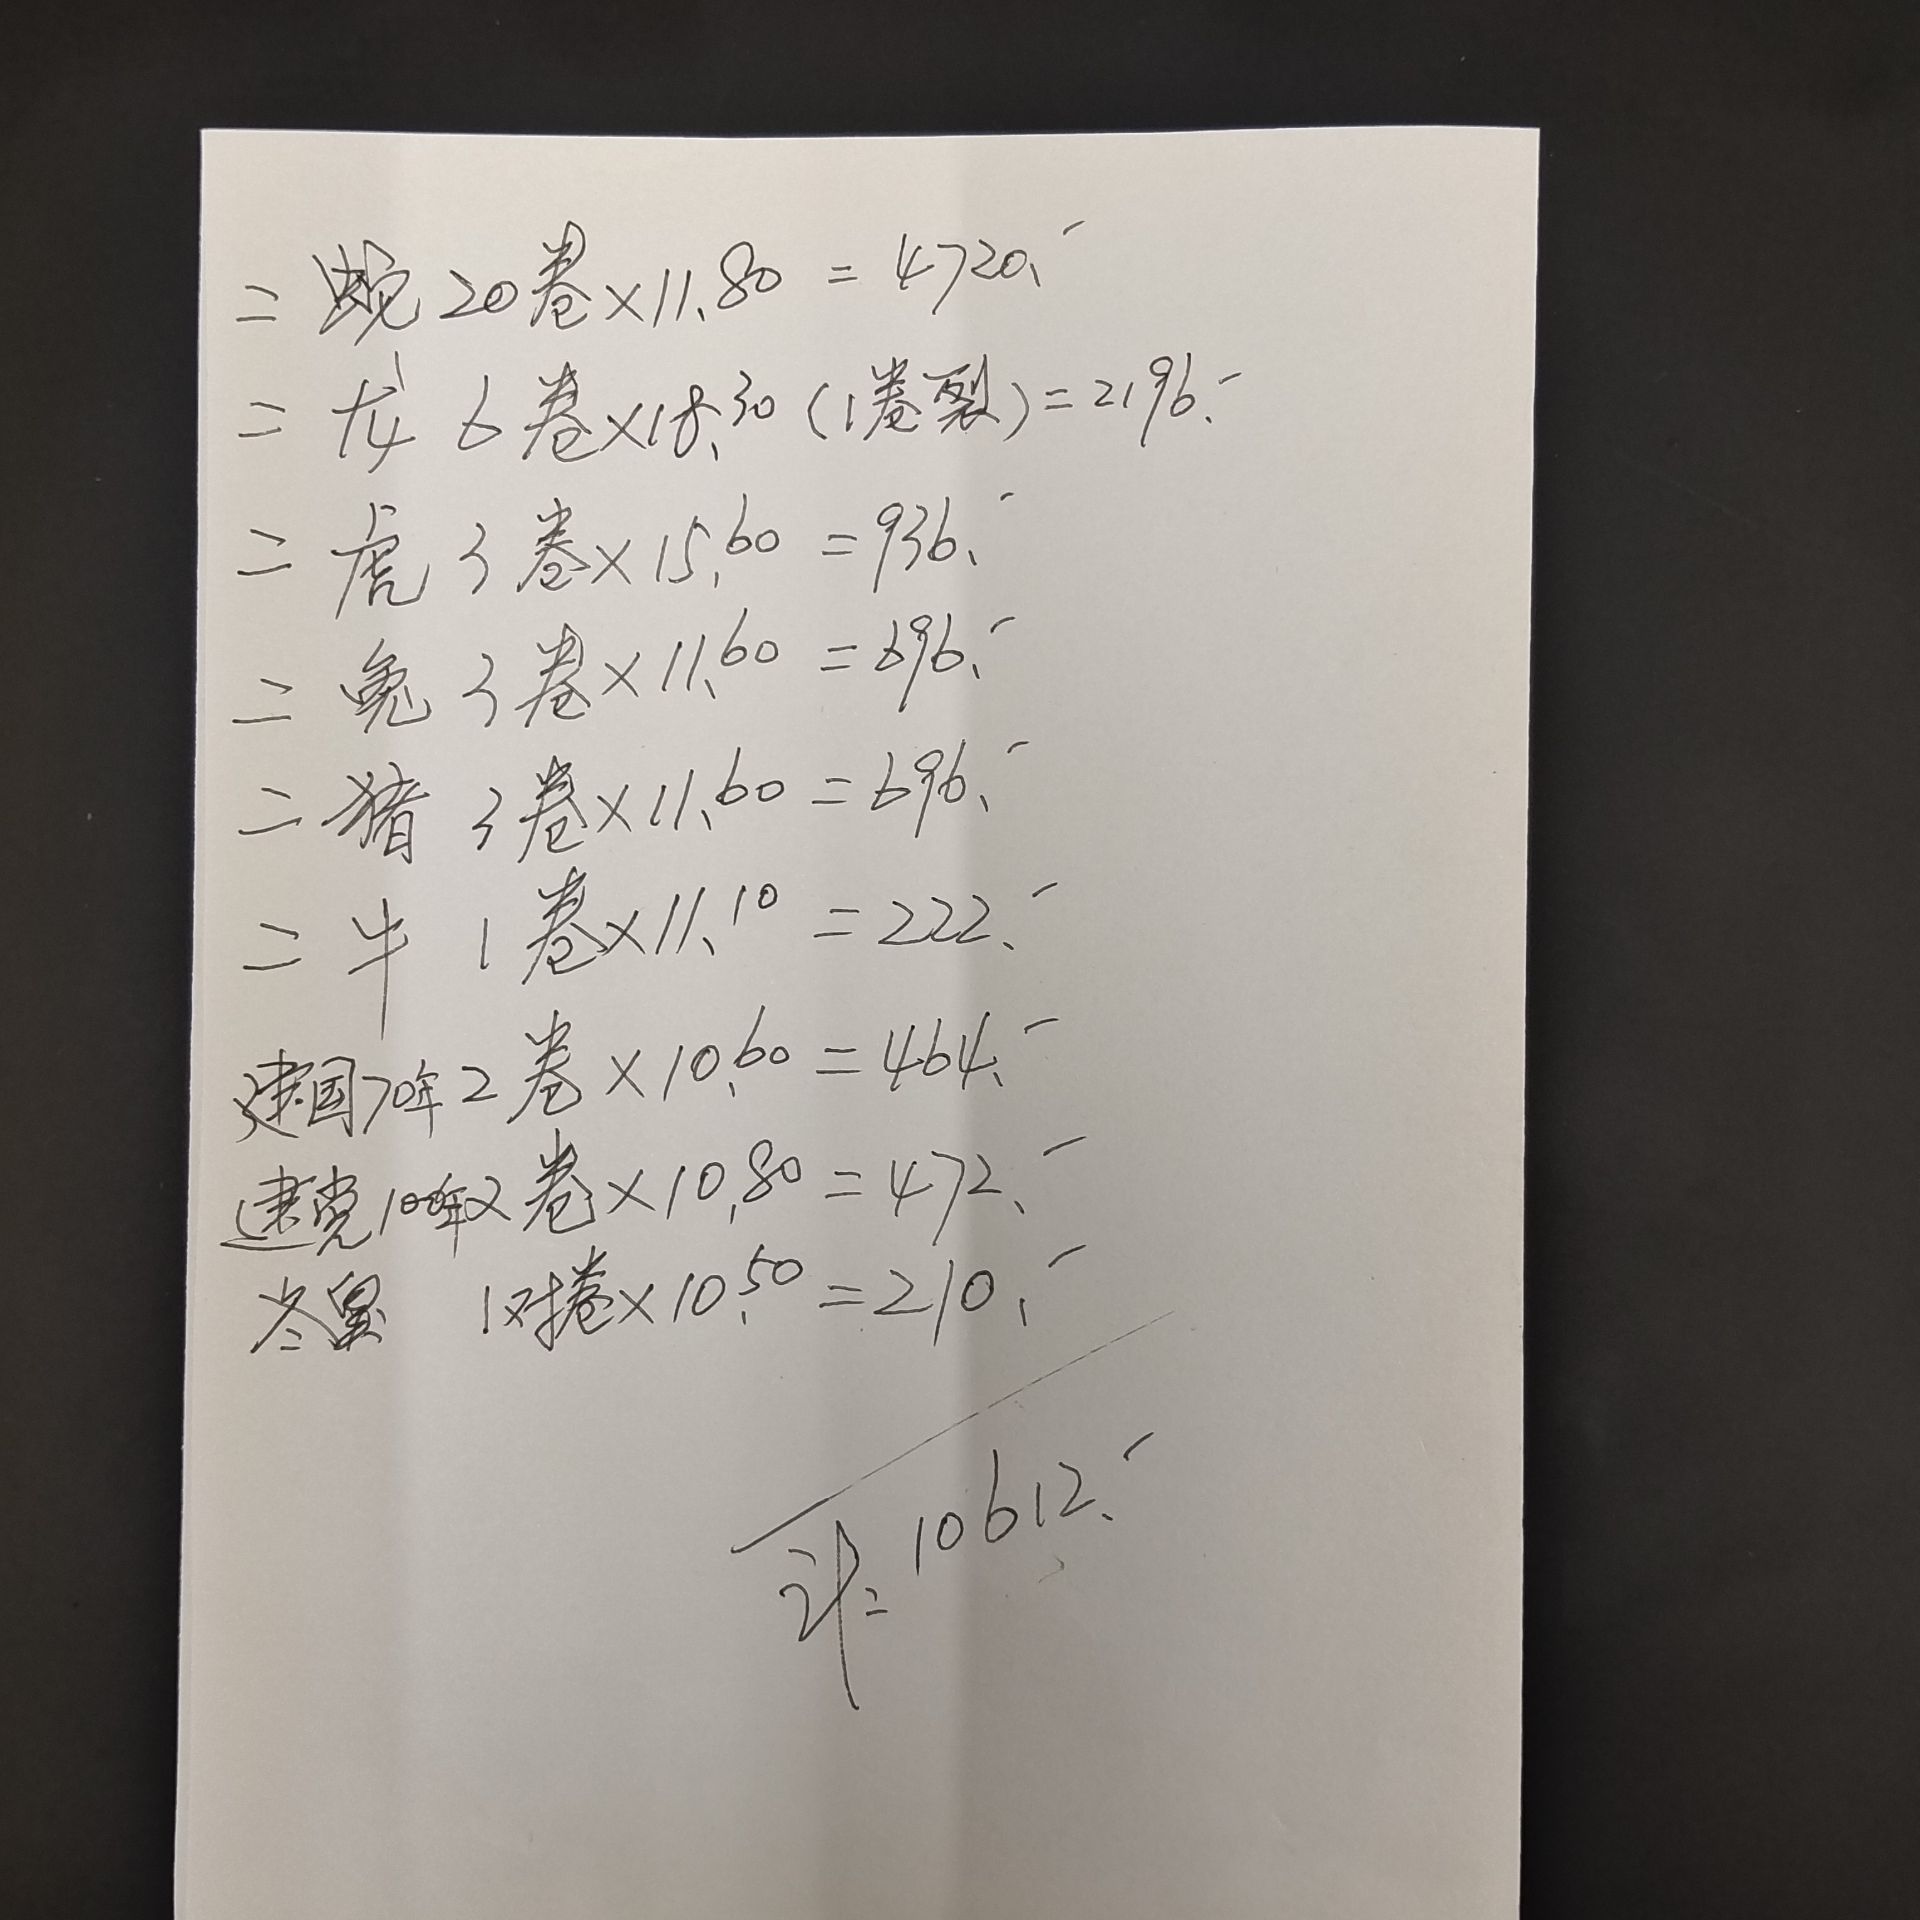 二 蛇 20卷×11.80 = 4720.-
二 龙 6卷×18.30(1卷裂)=2196.-
二 虎 3卷×15.60 =936.-
二 兔 3卷×11.60 =696.-
二 猪 3卷×11.60 =696.-
二 牛 1卷×11.10 =222.-
建国70年2卷×10.60=464.-
建党100年2卷×10.80=472.-
冬奥 1对捲×10.50=210.-
计= 10612.-